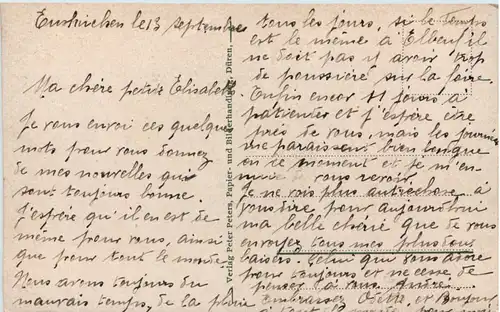 Euskirchen le 13 septembre
Ma chère petite Elisabeth
Je vous envoi ces quelques
mots pour vous donnez
de mes nouvelles qui
sont toujours bonne.
J'espère qu'il en est de
même pour vous, ainsi
que pour tout le monde.
Nous avons toujours du
mauvais temps, de la pluie
Verlag Peter Peters, Papier- und Bilderhandlung, Düren.
tous les jours, si le temps
est le même à Elbeuf il
ne doit pas y avoir trop
de poussière sur la foire.
Enfin encor 11 jours à
patienter et j'espère être
près de vous, mais les journées
me parais ent bien longue
en ce moment et je m'en-
nuie vous revoir.
Je ne vois plus autre chose à
vous dire pour aujourd'hui
ma belle chérie que de vous
envoyez tous mes plus doux
baisers. Celui qui vous adore
pour toujours et ne cesse de
penser à vous. André.
Embrassez Odette et Bonjour
à tout le monde